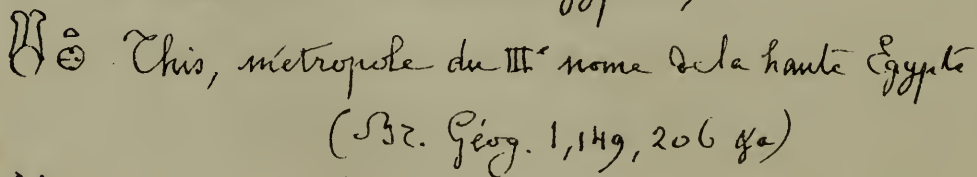 This, métropole du III<sup>e</sup> nome de la haute Égypte
(Br. Géog. 1, 149, 206 &a)